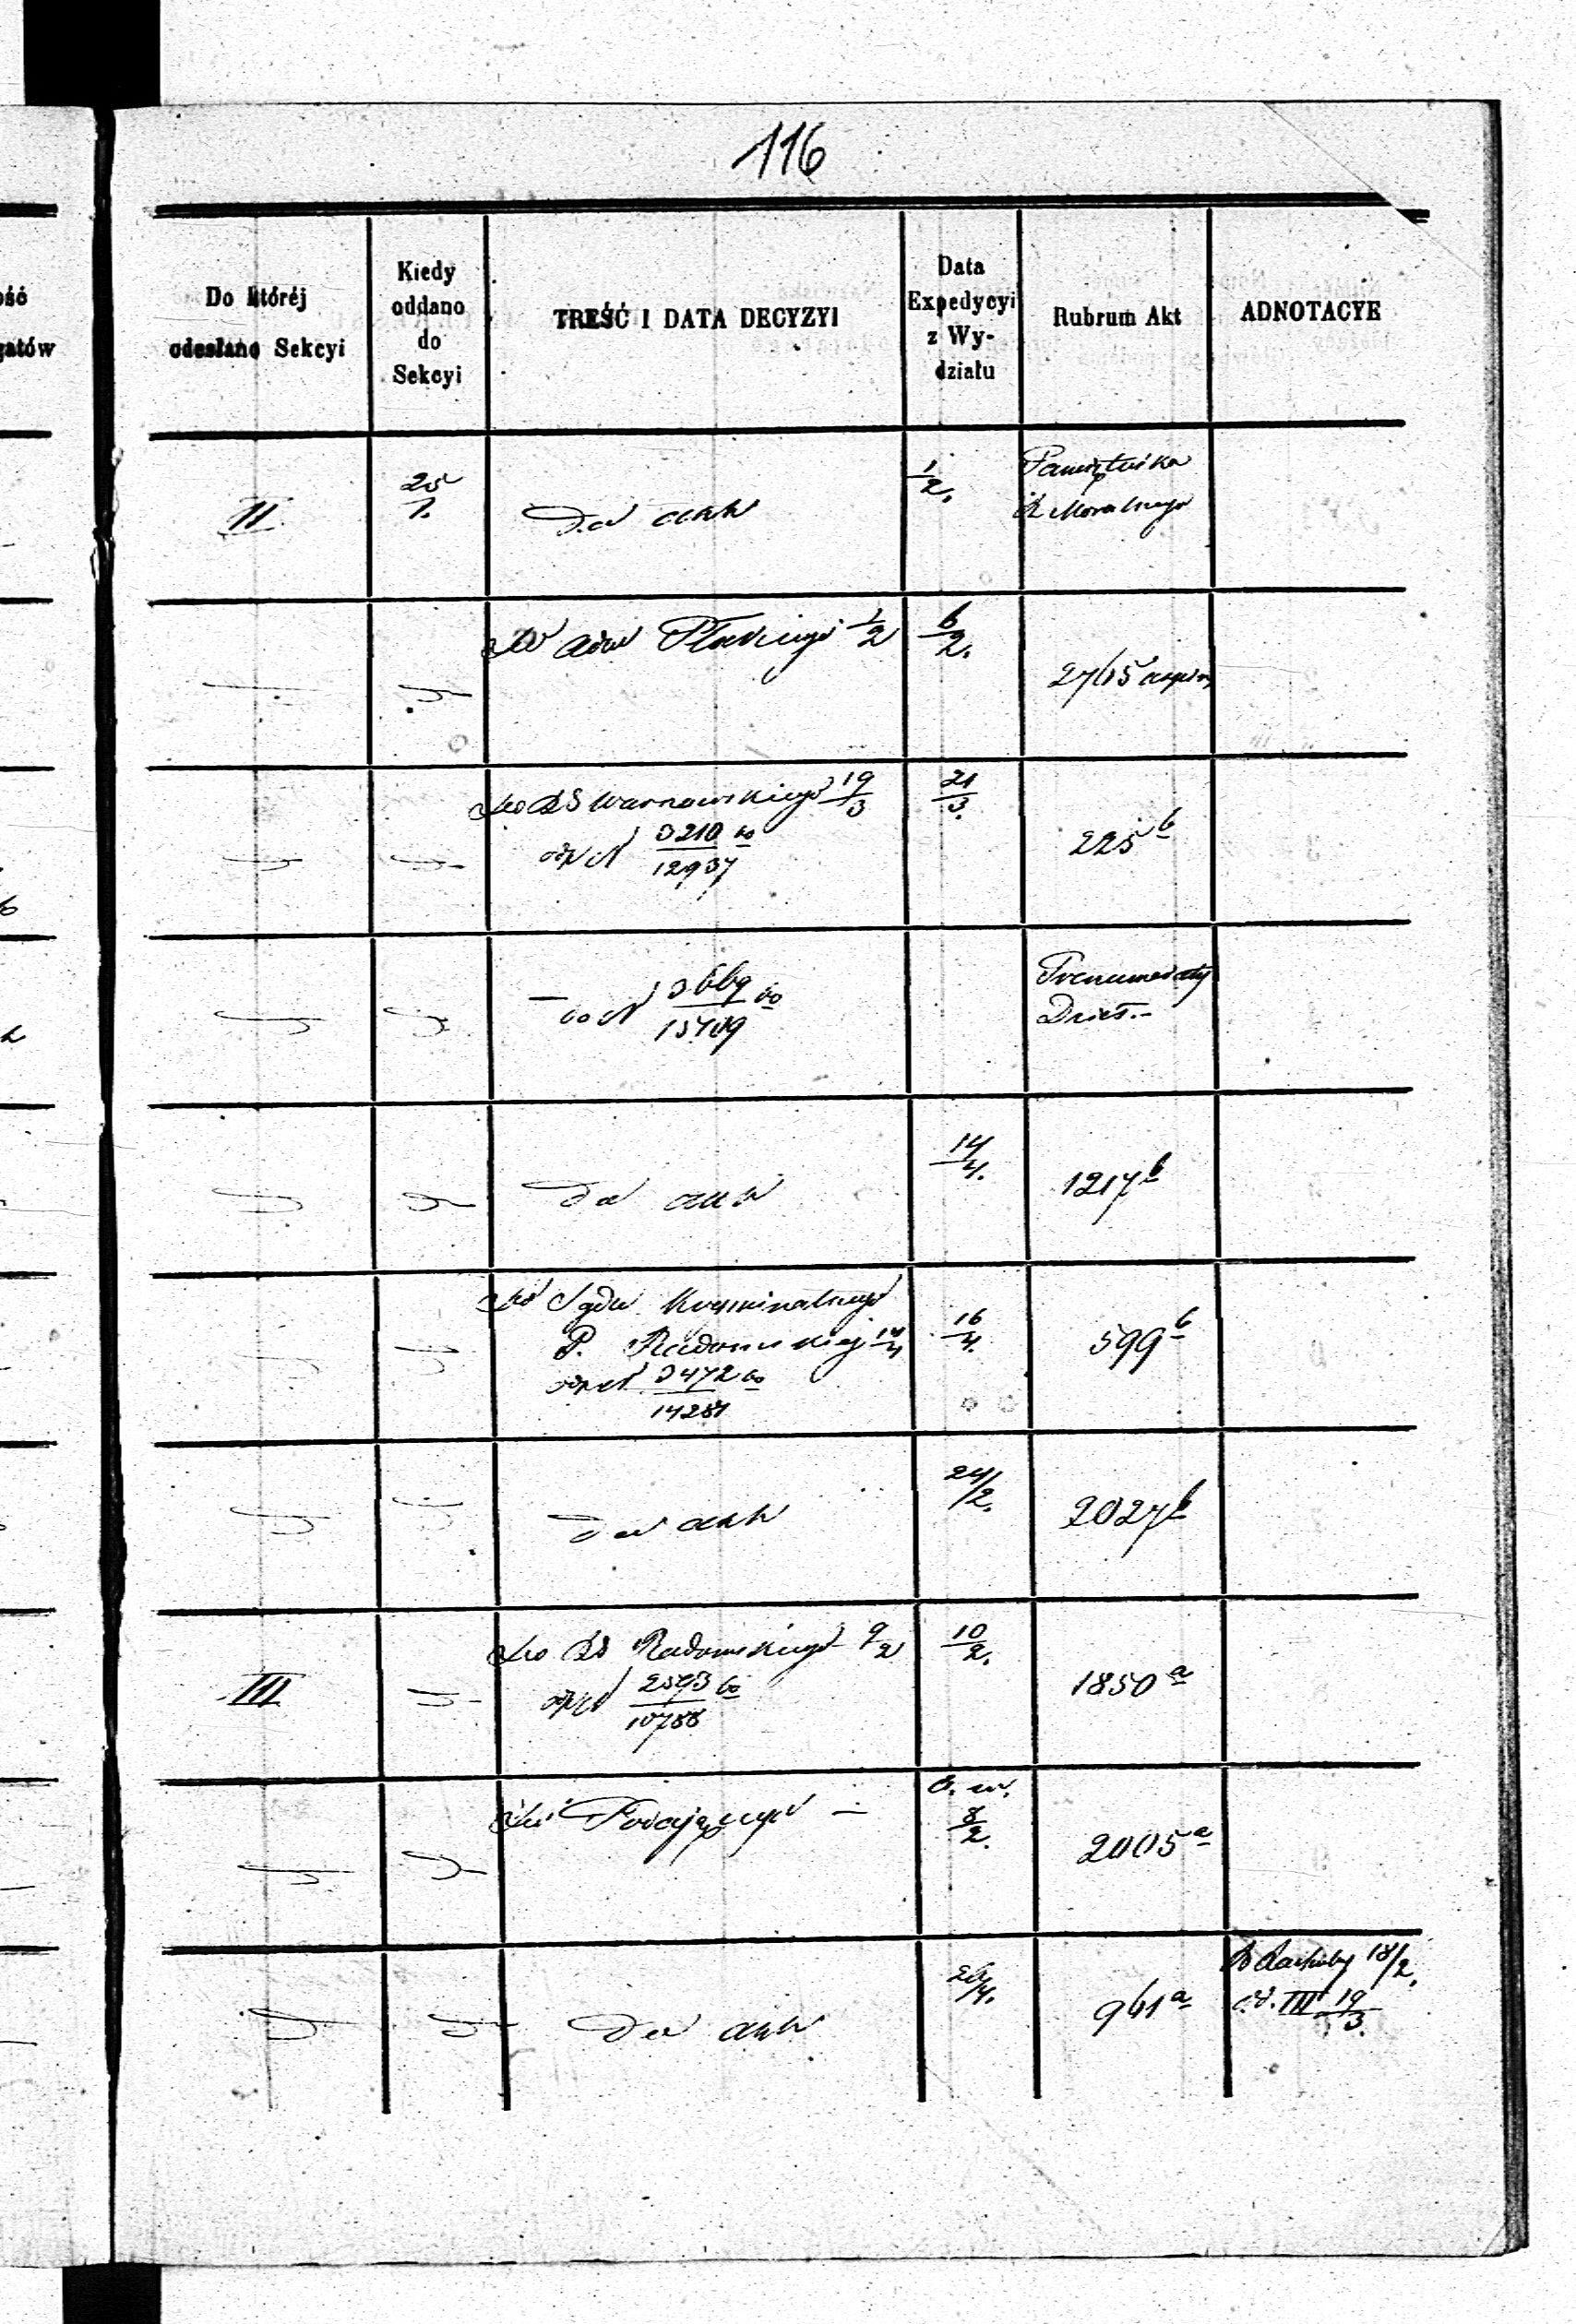 116
Do któréj
odesłano Sekcyi
Kiedy
oddano
do
Sekcyi
TREŚĆ I DATA DECYZYI
Data
Expedycyi
z Wy-
działu
Rubrum Akt
ADNOTACYE
ość
gatów
II
25/1.
Do akt
1/2.
Pamiętnika
R. Moralnego
1/2
6/2.
2765
Do RG Warszawskiego 19/3
odp N 3210/12937
21/3.
225 b
N 3669/15709
Prenumeraty
Dzieł.-
Do akt
14/4.
1217 b
Do Sądu Kryminalnego
P. Radomskiej 14/4
odp N 3472/14287
16/4.
599 b
Do akt
24/2.
2027 b
III
Do RG Radomskiego 9/2
odp N 2593/10788
10/2.
1850 a
8/2.
2005 a
Do akt
961 a
18/2.
III 19/3.